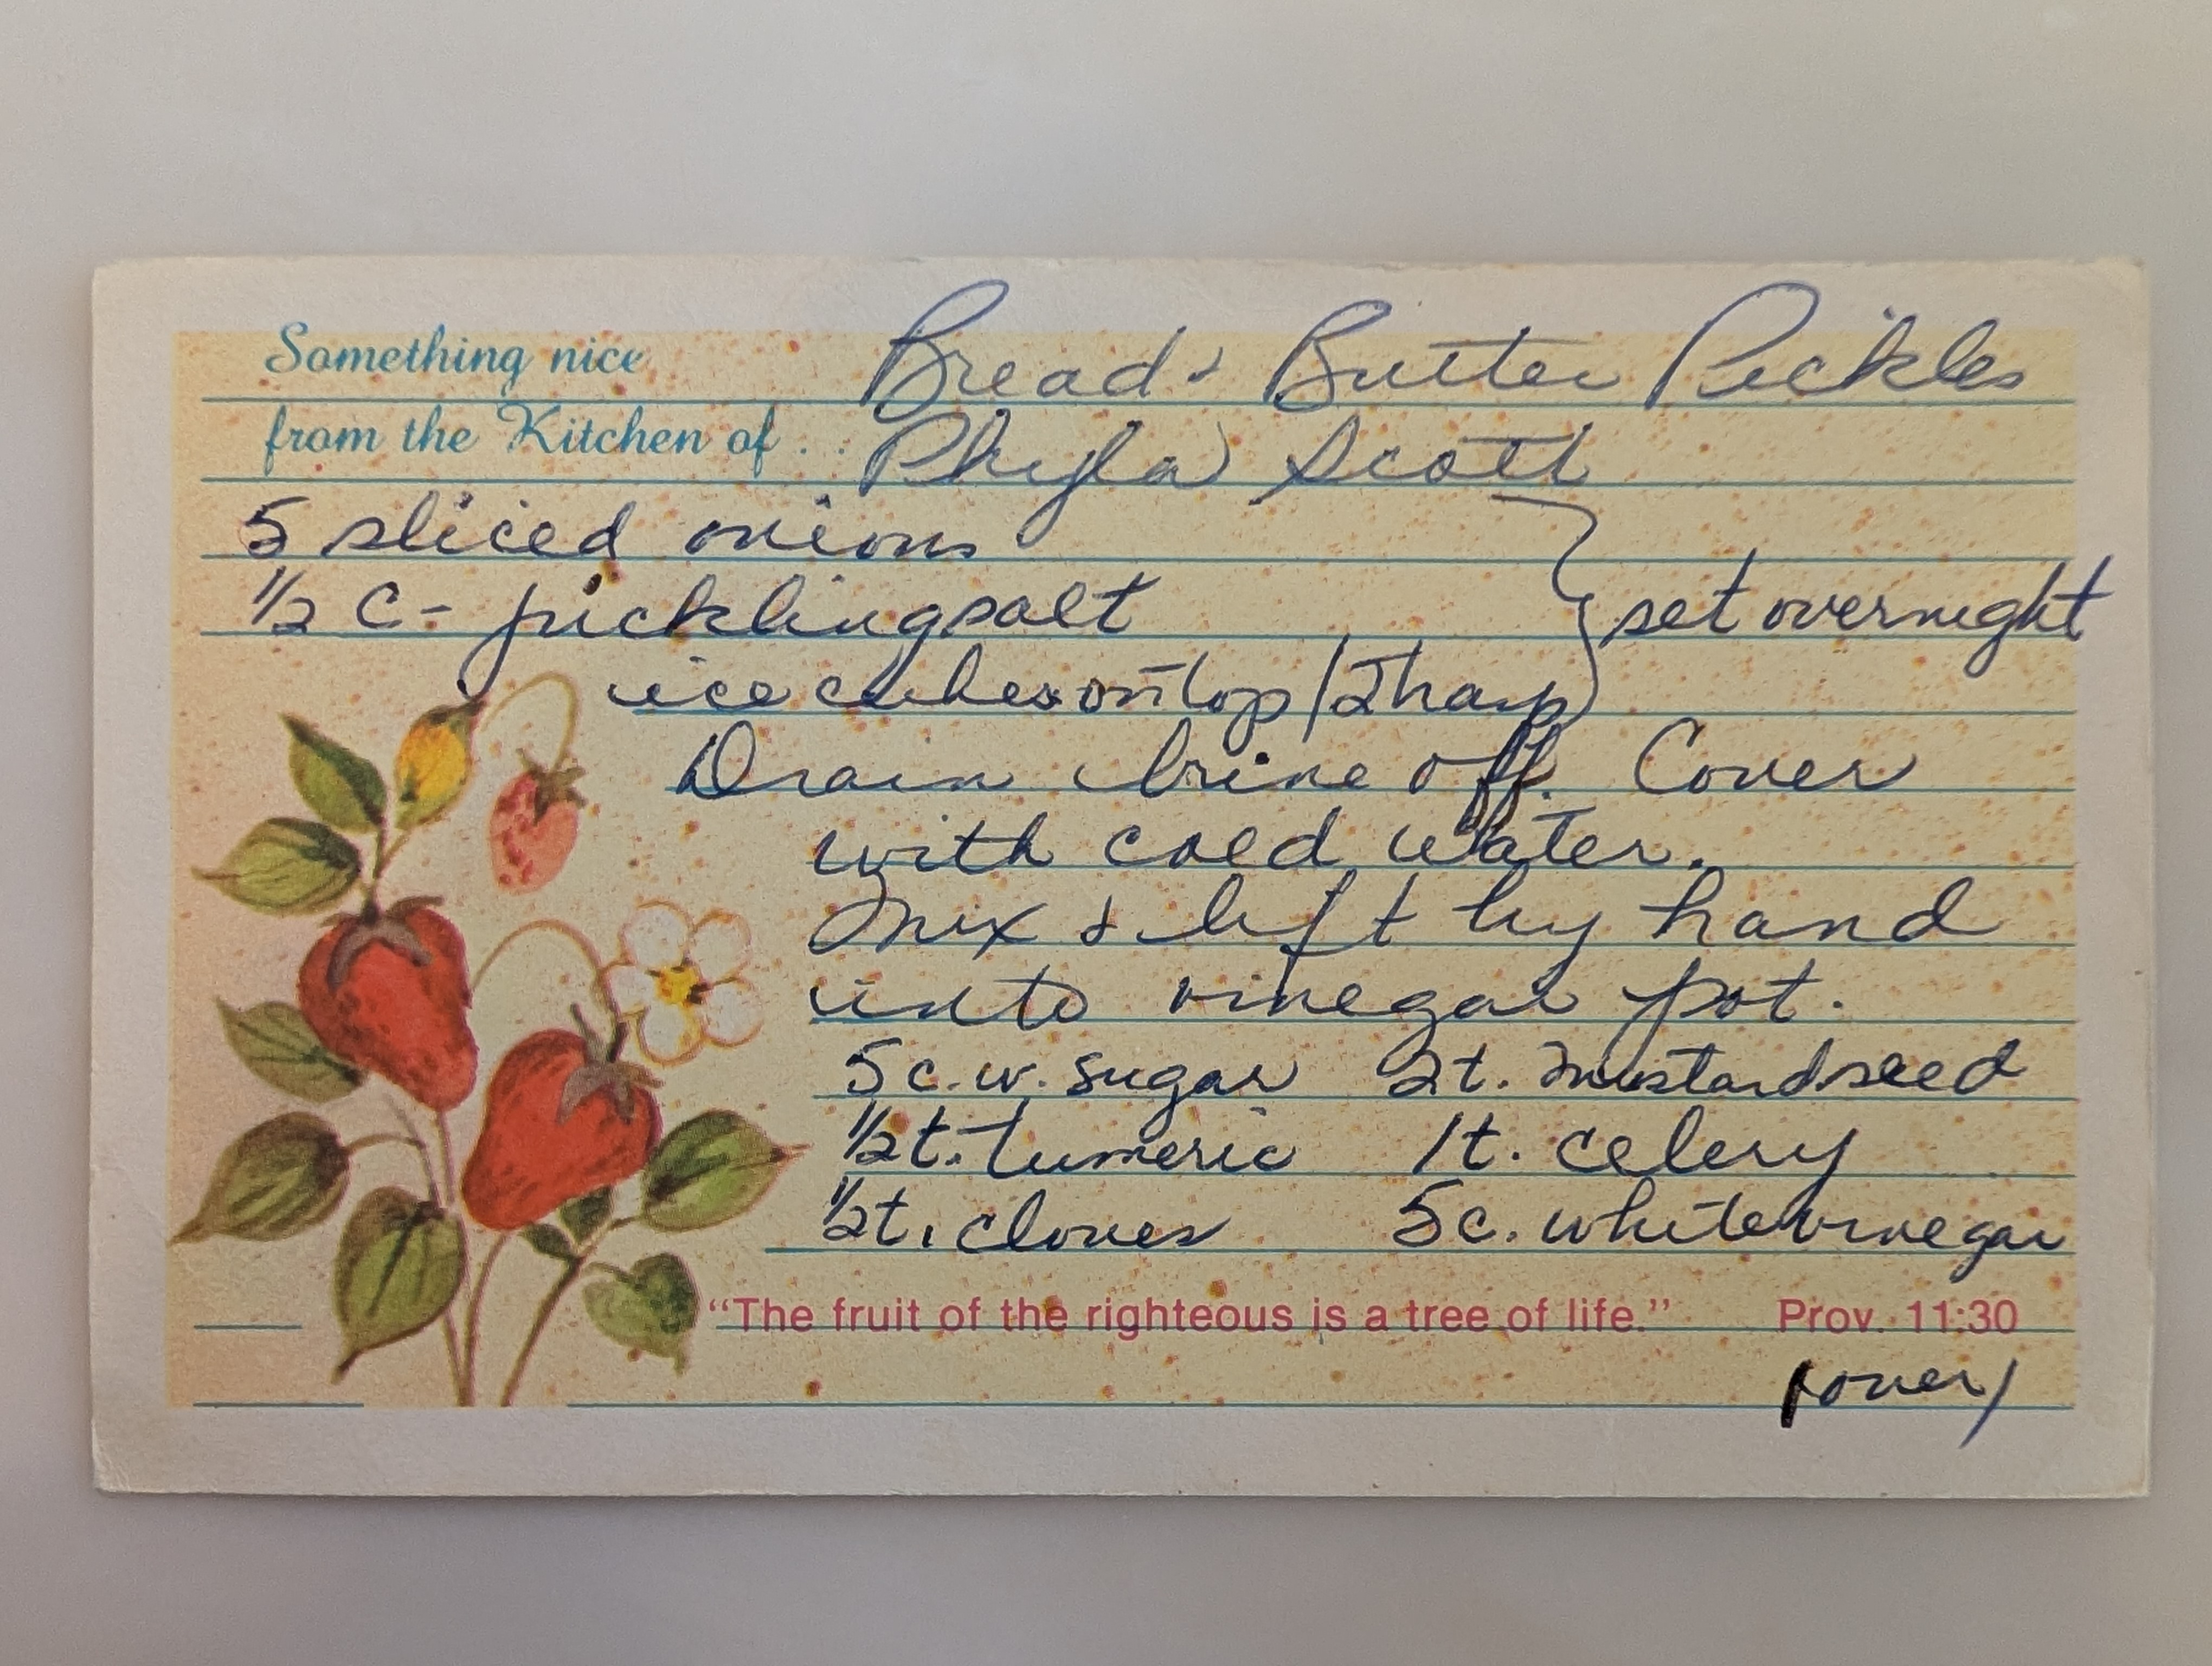 Something nice Bread & Butter Pickles
from the Kitchen of . . . Phyla Scott
5 sliced onions
1/2 c - pickling salt } set overnight
ice cubes on top /
Drain brine off. Cover
with cold water.
Mix & lift by hand
into vinegar pot.
5 c. w. sugar 2 t. mustard seed
1/2 t. tumeric 1 t. celery
1/2 t. cloves 5 c. white vinegar
"The fruit of the righteous is a tree of life." Prov. 11:30
(over)